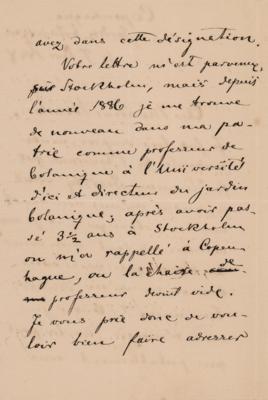 avez dans cette désignation.
Votre lettre m'est parvenue,
Stockholm, mais depuis
l'année 1886 je me trouve
de nouveau dans ma pa-
trie comme professeur de
botanique à l'Université
d'ici et directeur du jardin
botanique; après avoir pas-
sé 3½ ans à Stockholm
on m'a rappellé à Copen-
hague, ou la chaise de
professeur devint vide.
Je vous prie donc de vou-
loir bien faire adresser